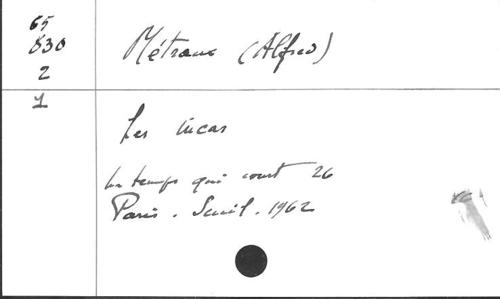 65
830
2
1
Métraux (Alfred)
Les Incas
Le temps qui court 26
Paris. Seuil. 1962